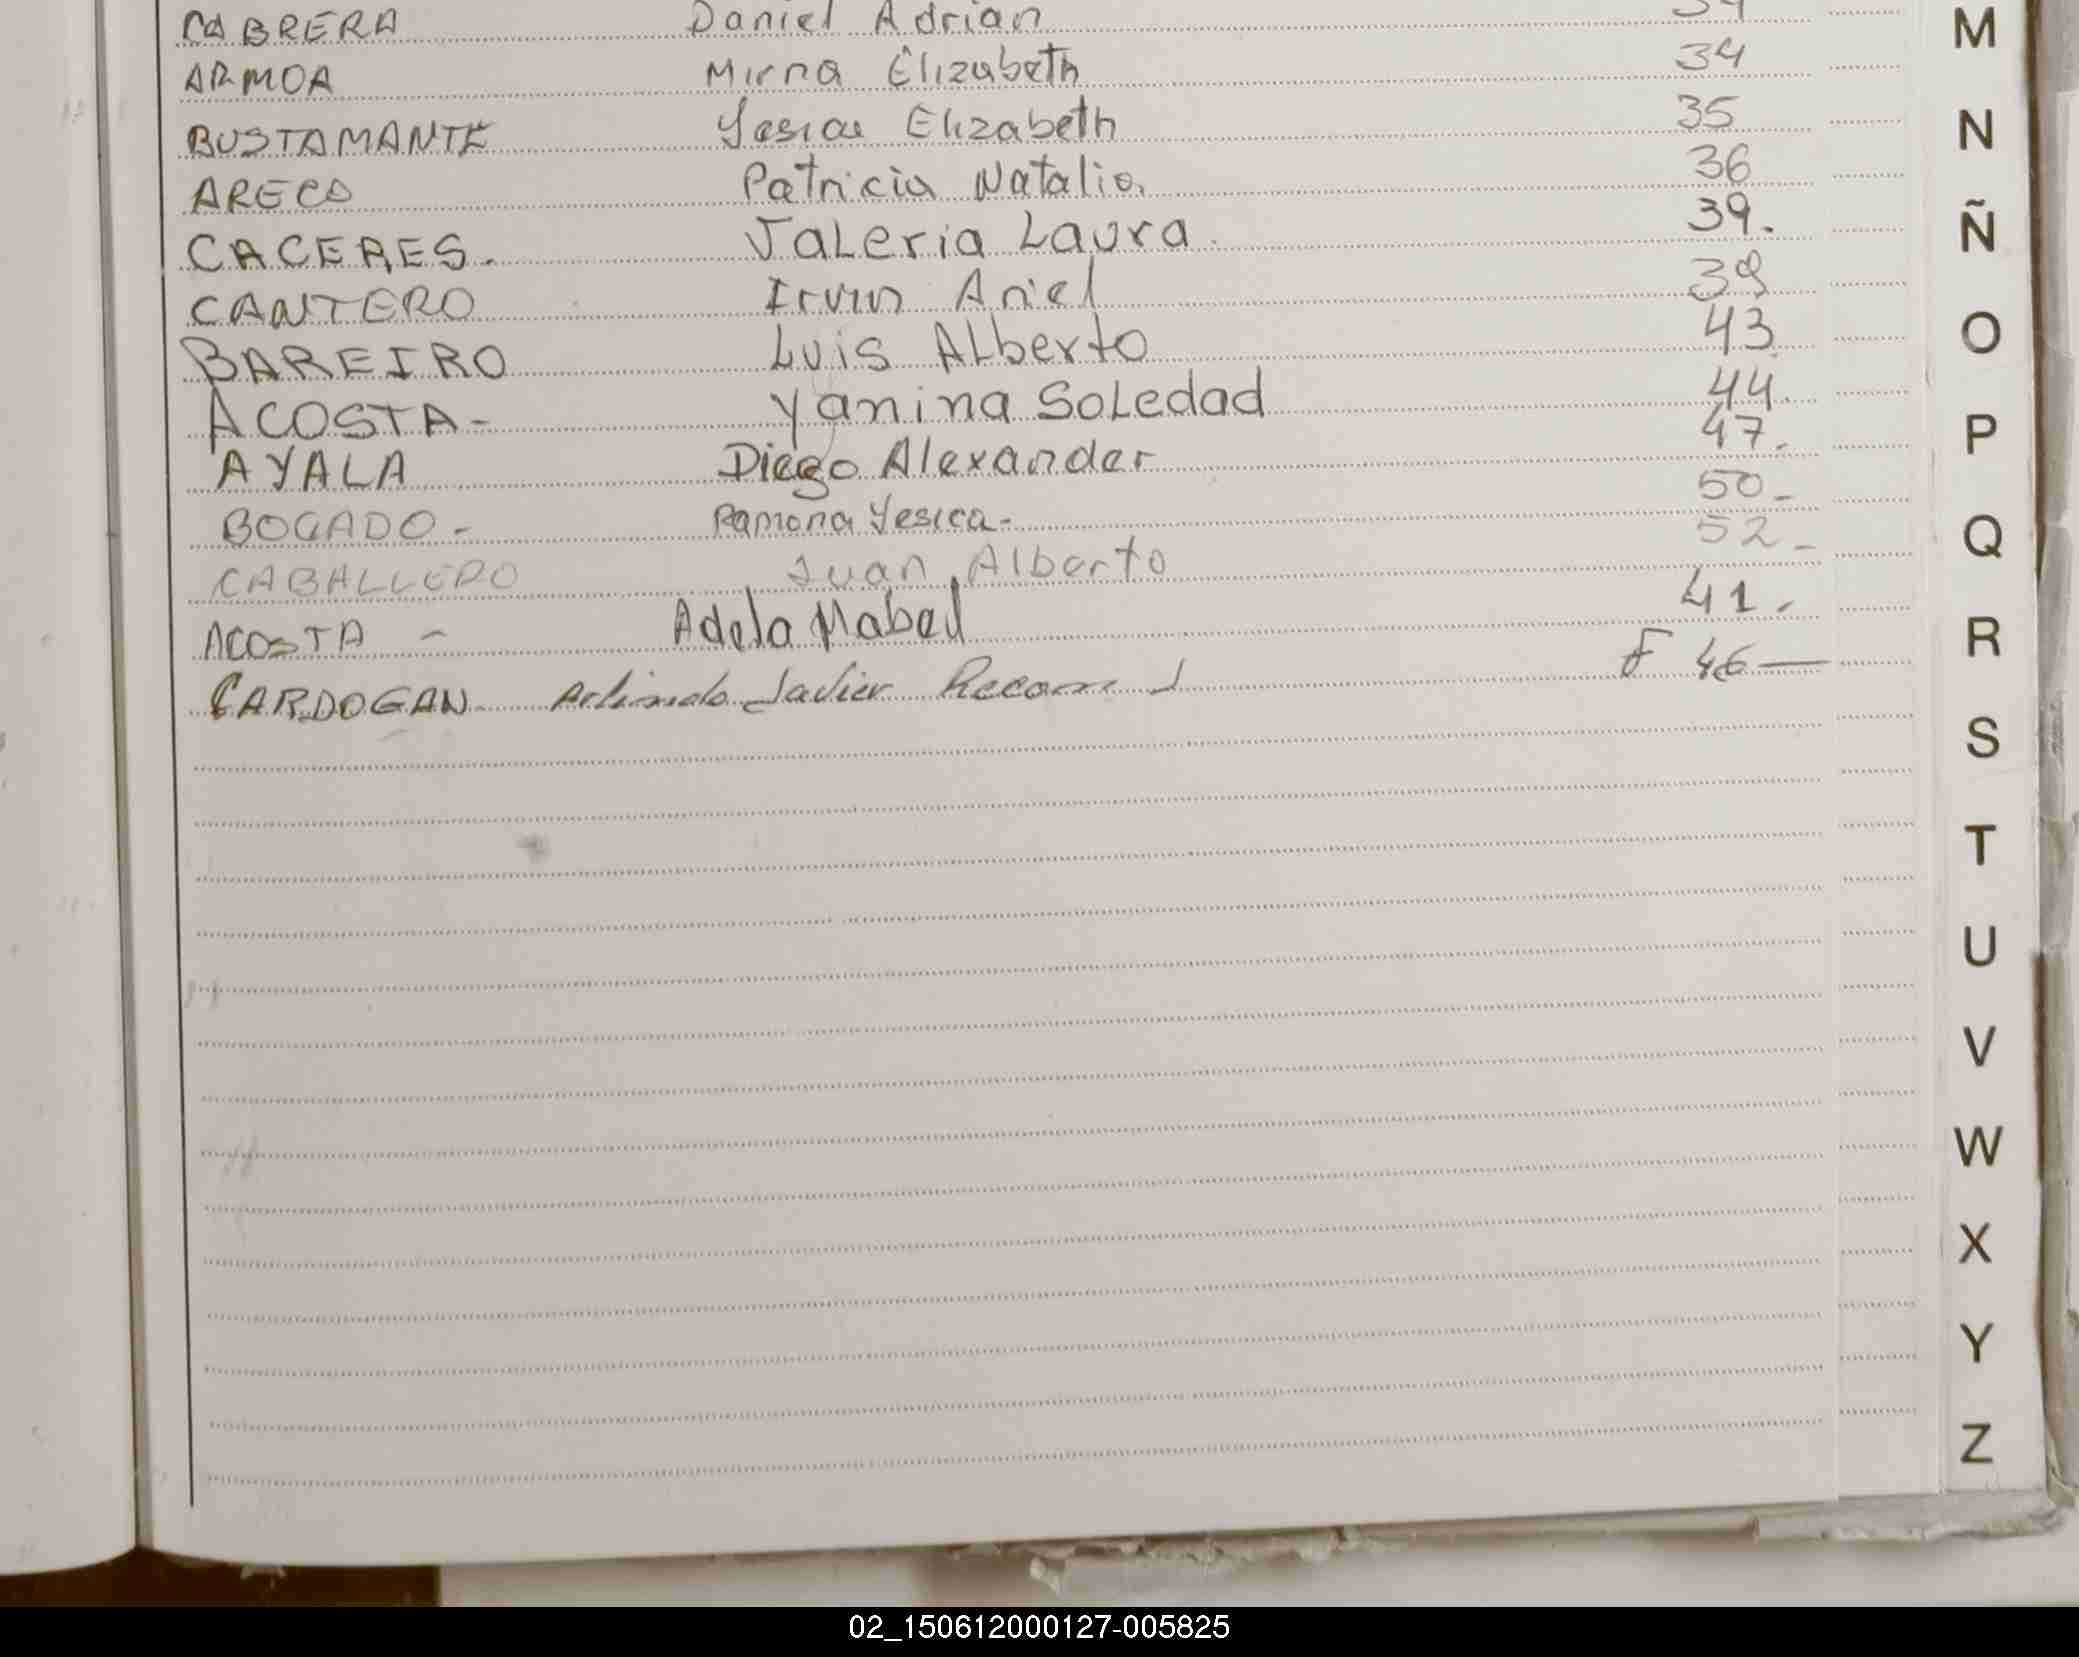 CABRERA Daniel Adrian 34
ARMOA Mirna Elizabeth 34
BUSTAMANTE Yesica Elizabeth 35
ARECO Patricia Natalia 36
CACERES. Valeria Laura. 39.
CANTERO Irvin Ariel 39
BAREIRO Luis Alberto 43.
ACOSTA- Yanina Soledad 44.
AYALA Diego Alexander 47.
BOGADO- Ramona Yesica- 50-
CABALLERO Juan Alberto 52-
ACOSTA - Adela Mabel 41.
CARDOGAN Javier F 46—
M
N
Ñ
O
P
Q
R
S
T
U
V
W
X
Y
Z
02_150612000127-005825